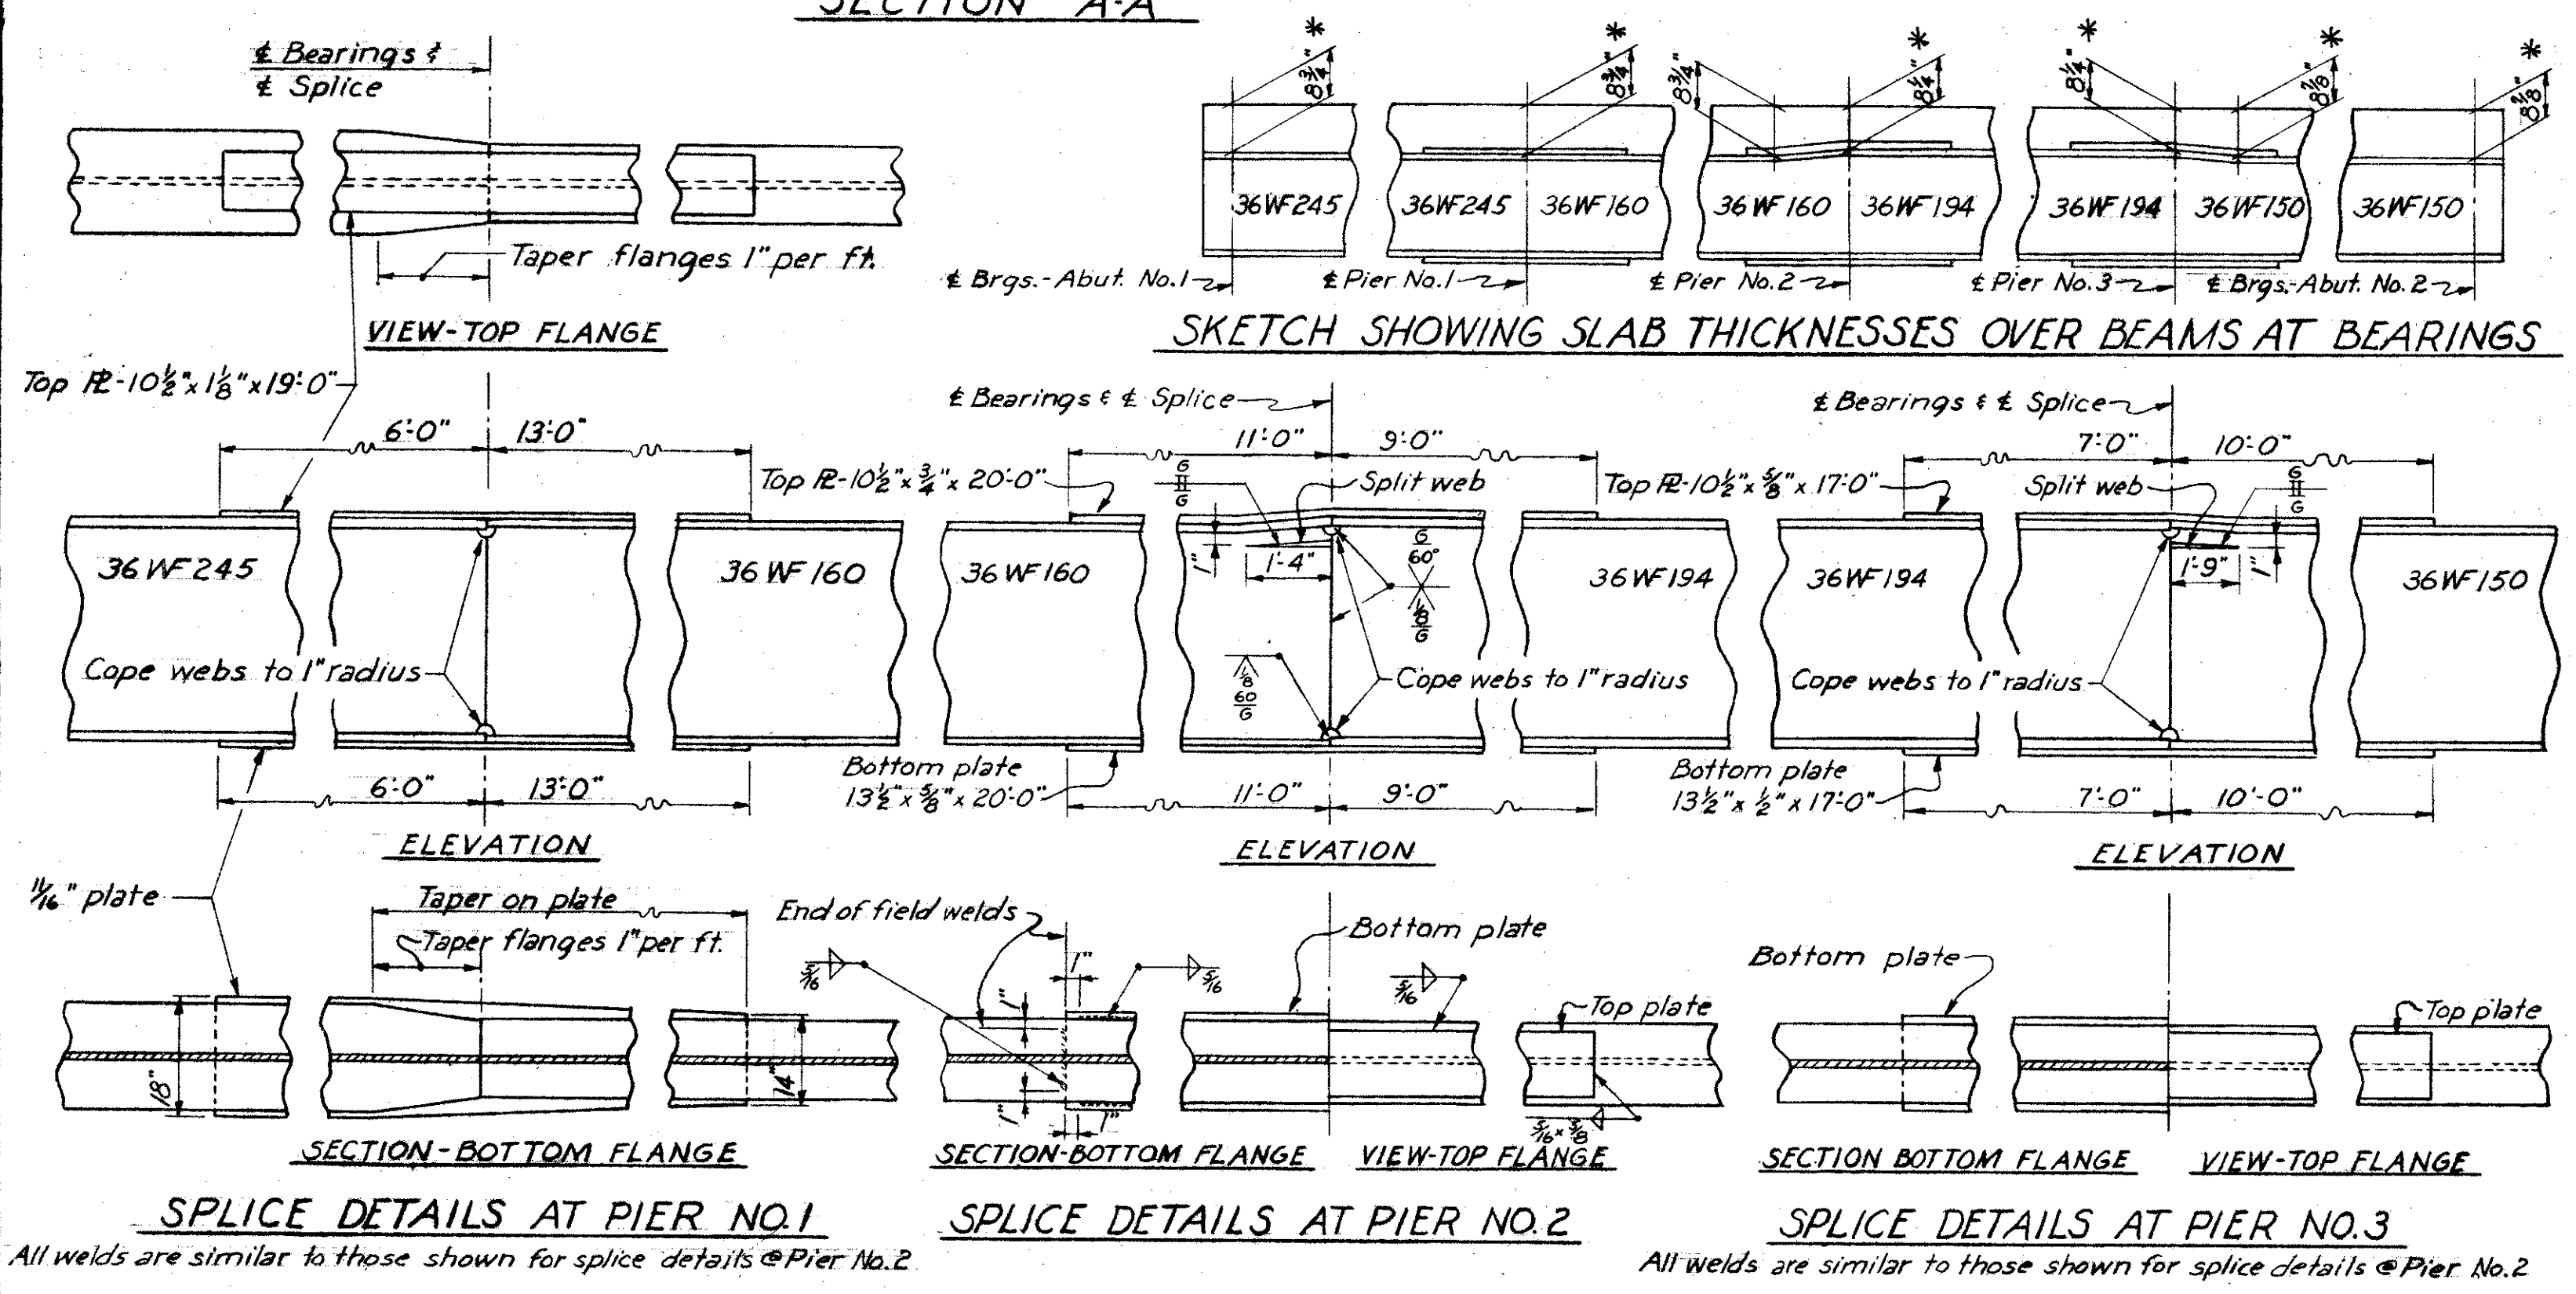 SECTION A-A
℄ Bearings &
℄ Splice
Taper flanges 1" per ft.
VIEW-TOP FLANGE
Top PL-10½"x1⅛"x19'-0"
* * * * * *
8¾" 8¾" 8¾" 8¼" 8¼" 8⅞" 8⅞"
36WF245 36WF245 36WF160 36WF160 36WF194 36WF194 36WF150 36WF150
℄ Brgs.-Abut. No.1 ℄ Pier No.1 ℄ Pier No.2 ℄ Pier No.3 ℄ Brgs.-Abut. No.2
SKETCH SHOWING SLAB THICKNESSES OVER BEAMS AT BEARINGS
6'-0" 13'-0"
36WF245 36WF160
Cope webs to 1" radius
6'-0" 13'-0"
ELEVATION
11/16" plate
Taper on plate
Taper flanges 1" per ft.
18" 14"
SECTION-BOTTOM FLANGE
SPLICE DETAILS AT PIER NO.1
All welds are similar to those shown for splice details @ Pier No.2
℄ Bearings & ℄ Splice
11'-0" 9'-0"
Top PL-10½"x¾"x20'-0"
G
G
Split web
1" 1'-4"
G
60°
⅛
G
36WF160 36WF194
⅛
60
G
Cope webs to 1" radius
Bottom plate
13½"x⅝"x20'-0"
11'-0" 9'-0"
ELEVATION
End of field welds
Bottom plate
5/16 1" 5/16 5/16
1"
Top plate
1" 1"
5/16x⅝
SECTION-BOTTOM FLANGE VIEW-TOP FLANGE
SPLICE DETAILS AT PIER NO.2
℄ Bearings & ℄ Splice
7'-0" 10'-0"
Top PL-10½"x⅝"x17'-0"
Split web
G
G
1'-9" 1"
36WF194 36WF150
Cope webs to 1" radius
Bottom plate
13½"x½"x17'-0"
7'-0" 10'-0"
ELEVATION
Bottom plate
Top plate
SECTION BOTTOM FLANGE VIEW-TOP FLANGE
SPLICE DETAILS AT PIER NO.3
All welds are similar to those shown for splice details @ Pier No.2